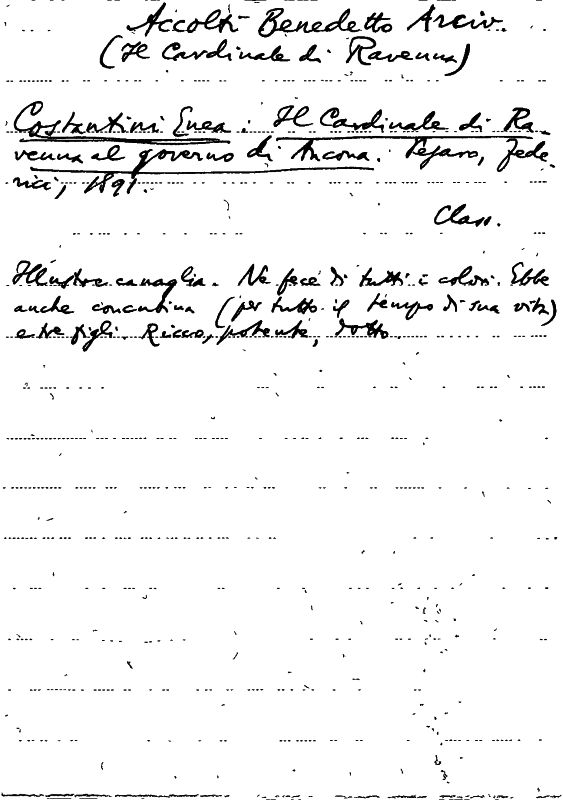 Accolti Benedetto Arciv.
(Il Cardinale di Ravenna)
Costantini Enea: Il Cardinale di Ra-
venna al governo di Ancona. Pesaro, Fede-
rici, 1891.
Class.
Illustre canaglia. Ne fece di tutti i colori. Ebbe
anche concubina (per tutto il tempo di sua vita)
e tre figli. Ricco, potente, dotto.